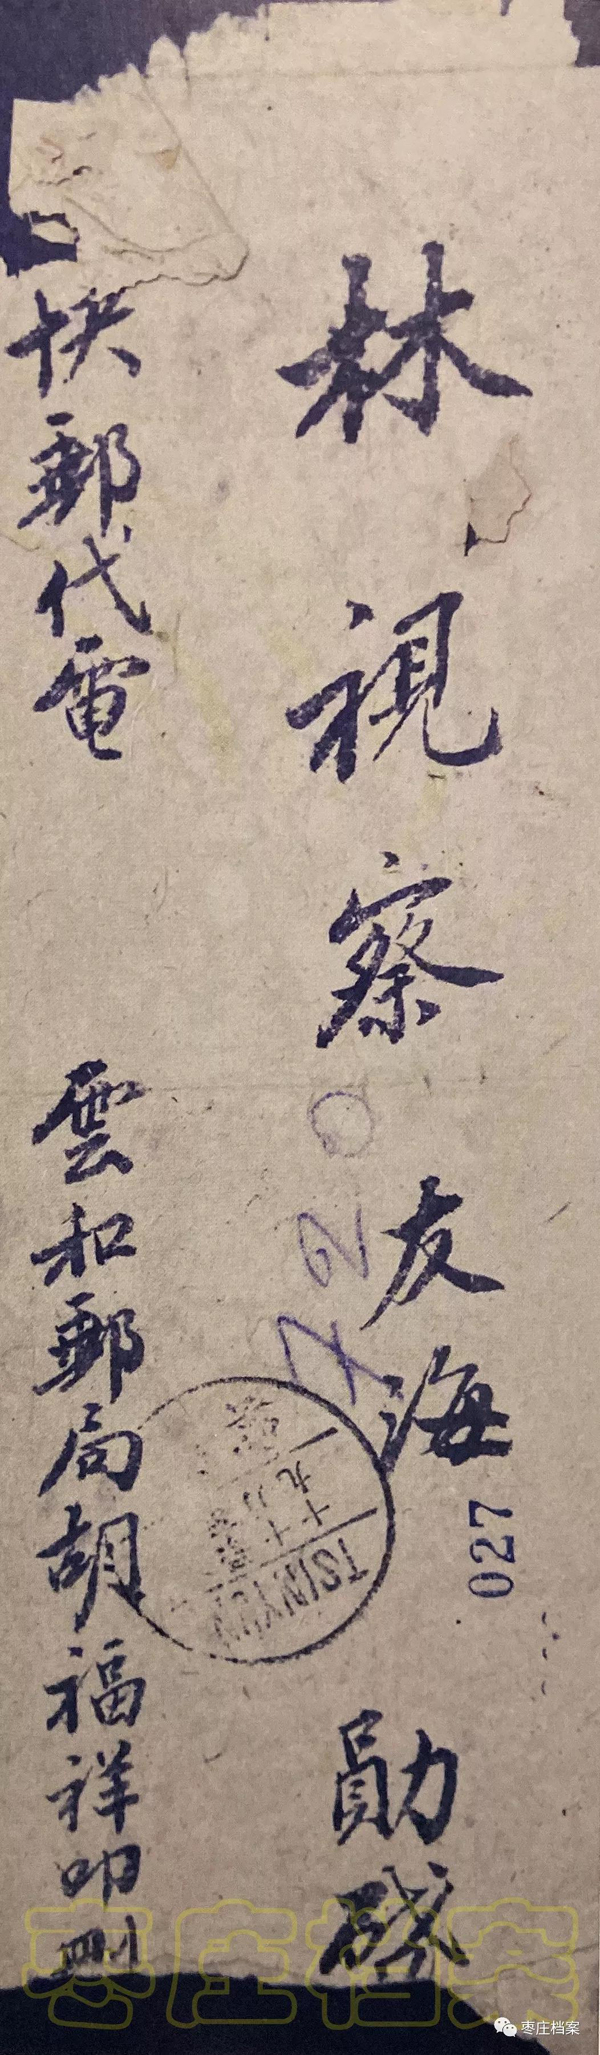 林視察 友海 勛啓
快郵代電 雲和郵局胡福祥叩删
720
027
TSINYUN
枣庄档案
枣庄档案